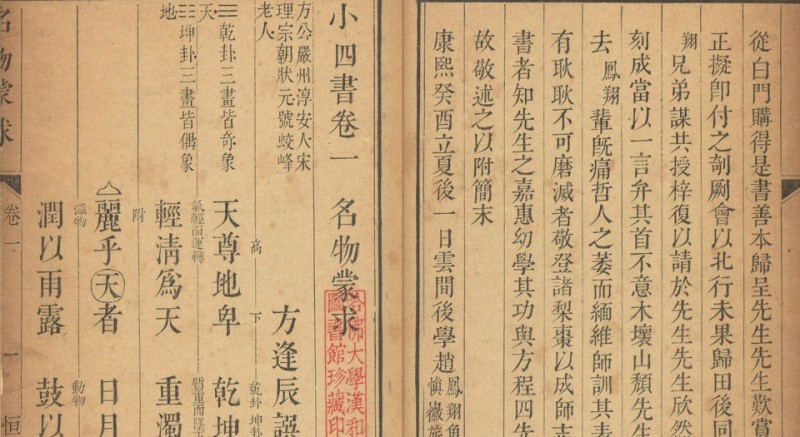 從白門購得是書善本歸呈先生先生歎賞
正擬卽付之剞劂會以北行未果歸田後同
翔兄弟謀共授梓復以請於先生先生欣然
刻成當以一言弁其首不意木壞山頹先生
去鳳翔輩旣痛哲人之萎而緬維師訓其表
有耿耿不可磨滅者敬登諸梨棗以成師志
書者知先生之嘉惠幼學其功與方程四先
故敬述之以附簡末
康熙癸酉立夏後一日雲間後學趙鳳翔
慎徽
小四書卷一 名物蒙求
哈佛大學漢和
圖書館珍藏印
方逢辰譔
方公嚴州淳安人宋
理宗朝狀元號蛟峰
老人
高 下 乾卦 坤卦
天尊地卑 乾坤
☰乾卦三畫皆奇象
天
☷坤卦三畫皆偶象
地
氣輕而運轉 質重而墜
輕清爲天 重濁
附
麗乎天者 日月
滋物 動物
潤以雨露 鼓以
名物蒙求 卷一 一 恒